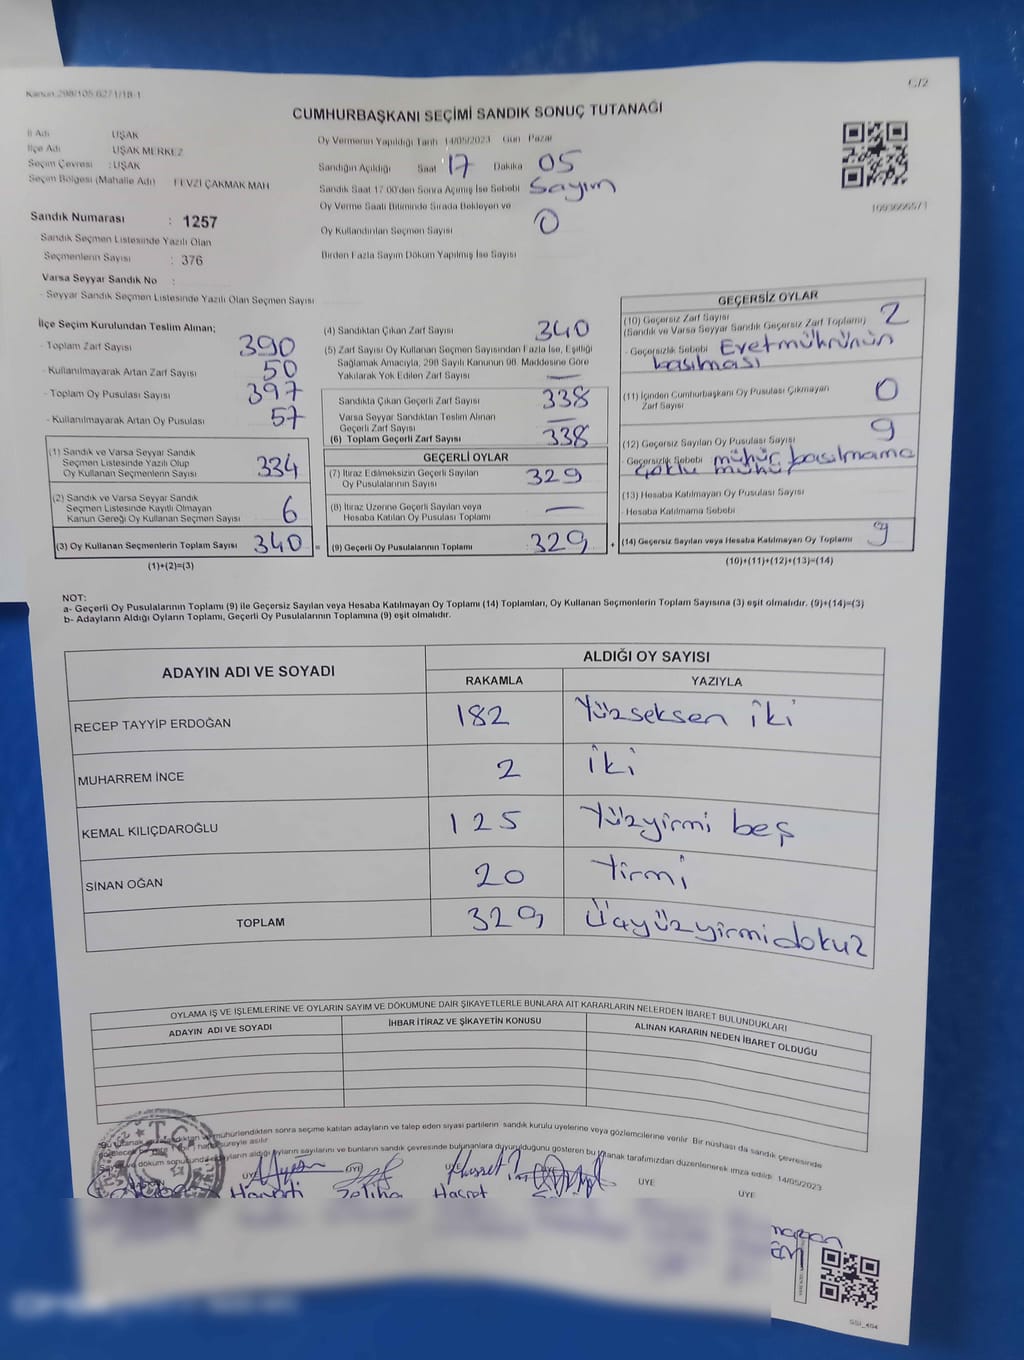 Kanun:298/105,6271/18-1
C/2
CUMHURBAŞKANI SEÇİMİ SANDIK SONUÇ TUTANAĞI
İl Adı UŞAK
İlçe Adı UŞAK MERKEZ
Seçim Çevresi : UŞAK
Seçim Bölgesi (Mahalle Adı) FEVZİ ÇAKMAK MAH
Sandık Numarası : 1257
Sandık Seçmen Listesinde Yazılı Olan
Seçmenlerin Sayısı : 376
Varsa Seyyar Sandık No :
- Seyyar Sandık Seçmen Listesinde Yazılı Olan Seçmen Sayısı
Oy Vermenin Yapıldığı Tarih 14/05/2023 Gün Pazar
Sandığın Açıldığı Saat 17 Dakika 05
Sandık Saat 17:00'den Sonra Açmış İse Sebebi Sayım
Oy Verme Saati Bitiminde Sırada Bekleyen ve
Oy Kullandırılan Seçmen Sayısı 0
Birden Fazla Sayım Döküm Yapılmış İse Sayısı
1093666571
İlçe Seçim Kurulundan Teslim Alınan;
- Toplam Zarf Sayısı 390
- Kullanılmayarak Artan Zarf Sayısı 50
- Toplam Oy Pusulası Sayısı 397
- Kullanılmayarak Artan Oy Pusulası 57
(1) Sandık ve Varsa Seyyar Sandık
Seçmen Listesinde Yazılı Olup
Oy Kullanan Seçmenlerin Sayısı 334
(2) Sandık ve Varsa Seyyar Sandık
Seçmen Listesinde Kayıtlı Olmayan
Kanun Gereği Oy Kullanan Seçmen Sayısı 6
(3) Oy Kullanan Seçmenlerin Toplam Sayısı 340 =
(1)+(2)=(3)
(4) Sandıktan Çıkan Zarf Sayısı 340
(5) Zarf Sayısı Oy Kullanan Seçmen Sayısından Fazla İse, Eşitliği
Sağlamak Amacıyla, 298 Sayılı Kanunun 98. Maddesine Göre
Yakılarak Yok Edilen Zarf Sayısı —
Sandıkta Çıkan Geçerli Zarf Sayısı 338
Varsa Seyyar Sandıktan Teslim Alınan
Geçerli Zarf Sayısı —
(6) Toplam Geçerli Zarf Sayısı 338
GEÇERLİ OYLAR
(7) İtiraz Edilmeksizin Geçerli Sayılan
Oy Pusulalarının Sayısı 329
(8) İtiraz Üzerine Geçerli Sayılan veya
Hesaba Katılan Oy Pusulası Toplamı —
(9) Geçerli Oy Pusulalarının Toplamı 329 +
GEÇERSİZ OYLAR
(10) Geçersiz Zarf Sayısı 2
(Sandık ve Varsa Seyyar Sandık Geçersiz Zarf Toplamı)
- Geçersizlik Sebebi Evet mührünün
basılması
(11) İçinden Cumhurbaşkanı Oy Pusulası Çıkmayan
Zarf Sayısı 0
(12) Geçersiz Sayılan Oy Pusulası Sayısı 9
- Geçersizlik Sebebi mühür basılmama
çoklu mühür
(13) Hesaba Katılmayan Oy Pusulası Sayısı
- Hesaba Katılmama Sebebi
(14) Geçersiz Sayılan veya Hesaba Katılmayan Oy Toplamı 9
(10)+(11)+(12)+(13)=(14)
NOT:
a- Geçerli Oy Pusulalarının Toplamı (9) ile Geçersiz Sayılan veya Hesaba Katılmayan Oy Toplamı (14) Toplamları, Oy Kullanan Seçmenlerin Toplam Sayısına (3) eşit olmalıdır. (9)+(14)=(3)
b- Adayların Aldığı Oyların Toplamı, Geçerli Oy Pusulalarının Toplamına (9) eşit olmalıdır.
ADAYIN ADI VE SOYADI ALDIĞI OY SAYISI
RAKAMLA YAZIYLA
RECEP TAYYİP ERDOĞAN 182 Yüzseksen iki
MUHARREM İNCE 2 iki
KEMAL KILIÇDAROĞLU 125 Yüzyirmi beş
SİNAN OĞAN 20 Yirmi
TOPLAM 329 Üçyüzyirmidokuz
OYLAMA İŞ VE İŞLEMLERİNE VE OYLARIN SAYIM VE DÖKÜMÜNE DAİR ŞİKAYETLERLE BUNLARA AİT KARARLARIN NELERDEN İBARET BULUNDUKLARI
ADAYIN ADI VE SOYADI İHBAR İTİRAZ VE ŞİKAYETİN KONUSU ALINAN KARARIN NEDEN İBARET OLDUĞU
mühürlendikten sonra seçime katılan adayların ve talep eden siyasi partilerin sandık kurulu üyelerine veya gözlemcilerine verilir. Bir nüshası da sandık çevresinde
süreyle asılır.
aldığı oyların sayılarını ve bunların sandık çevresinde bulunanlara duyurulduğunu gösteren bu tutanak tarafımızdan düzenlenerek imza edildi. 14/05/2023
T.C.
ÜYE ÜYE ÜYE ÜYE
Hayati Zeliha Hasret
GSI_404